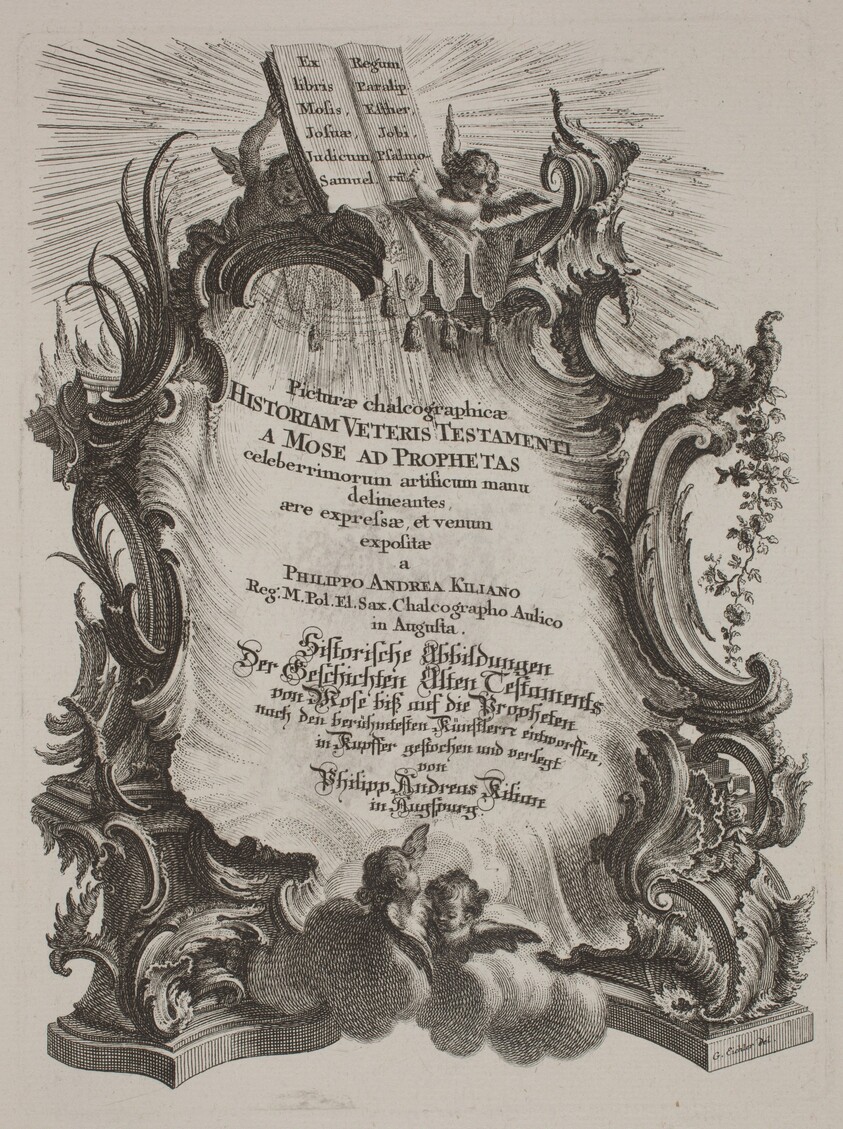 Ex
libris
Mosis,
Josuæ,
Judicum,
Samuel.
Regum,
Paralip.
Esther,
Jobi,
Psalmo-
rū.
Picturæ chalcographicæ
HISTORIAM VETERIS TESTAMENTI
A MOSE AD PROPHETAS
celeberrimorum artificum manu
delineantes,
ære expreſsæ, et venum
expoſitæ
a
PHILIPPO ANDREA KILIANO
Reg: M. Pol. El. Sax. Chalcographo Aulico
in Auguſta.
Hiſtoriſche Abbildungen
Der Geſchichten Alten Teſtaments
von Moſe biß auf die Propheten
nach den berühmteſten Künſtlern entworffen,
in Kupffer geſtochen und verlegt
von
Philipp Andreas Kilian
in Augſpurg
G. Eichler del.